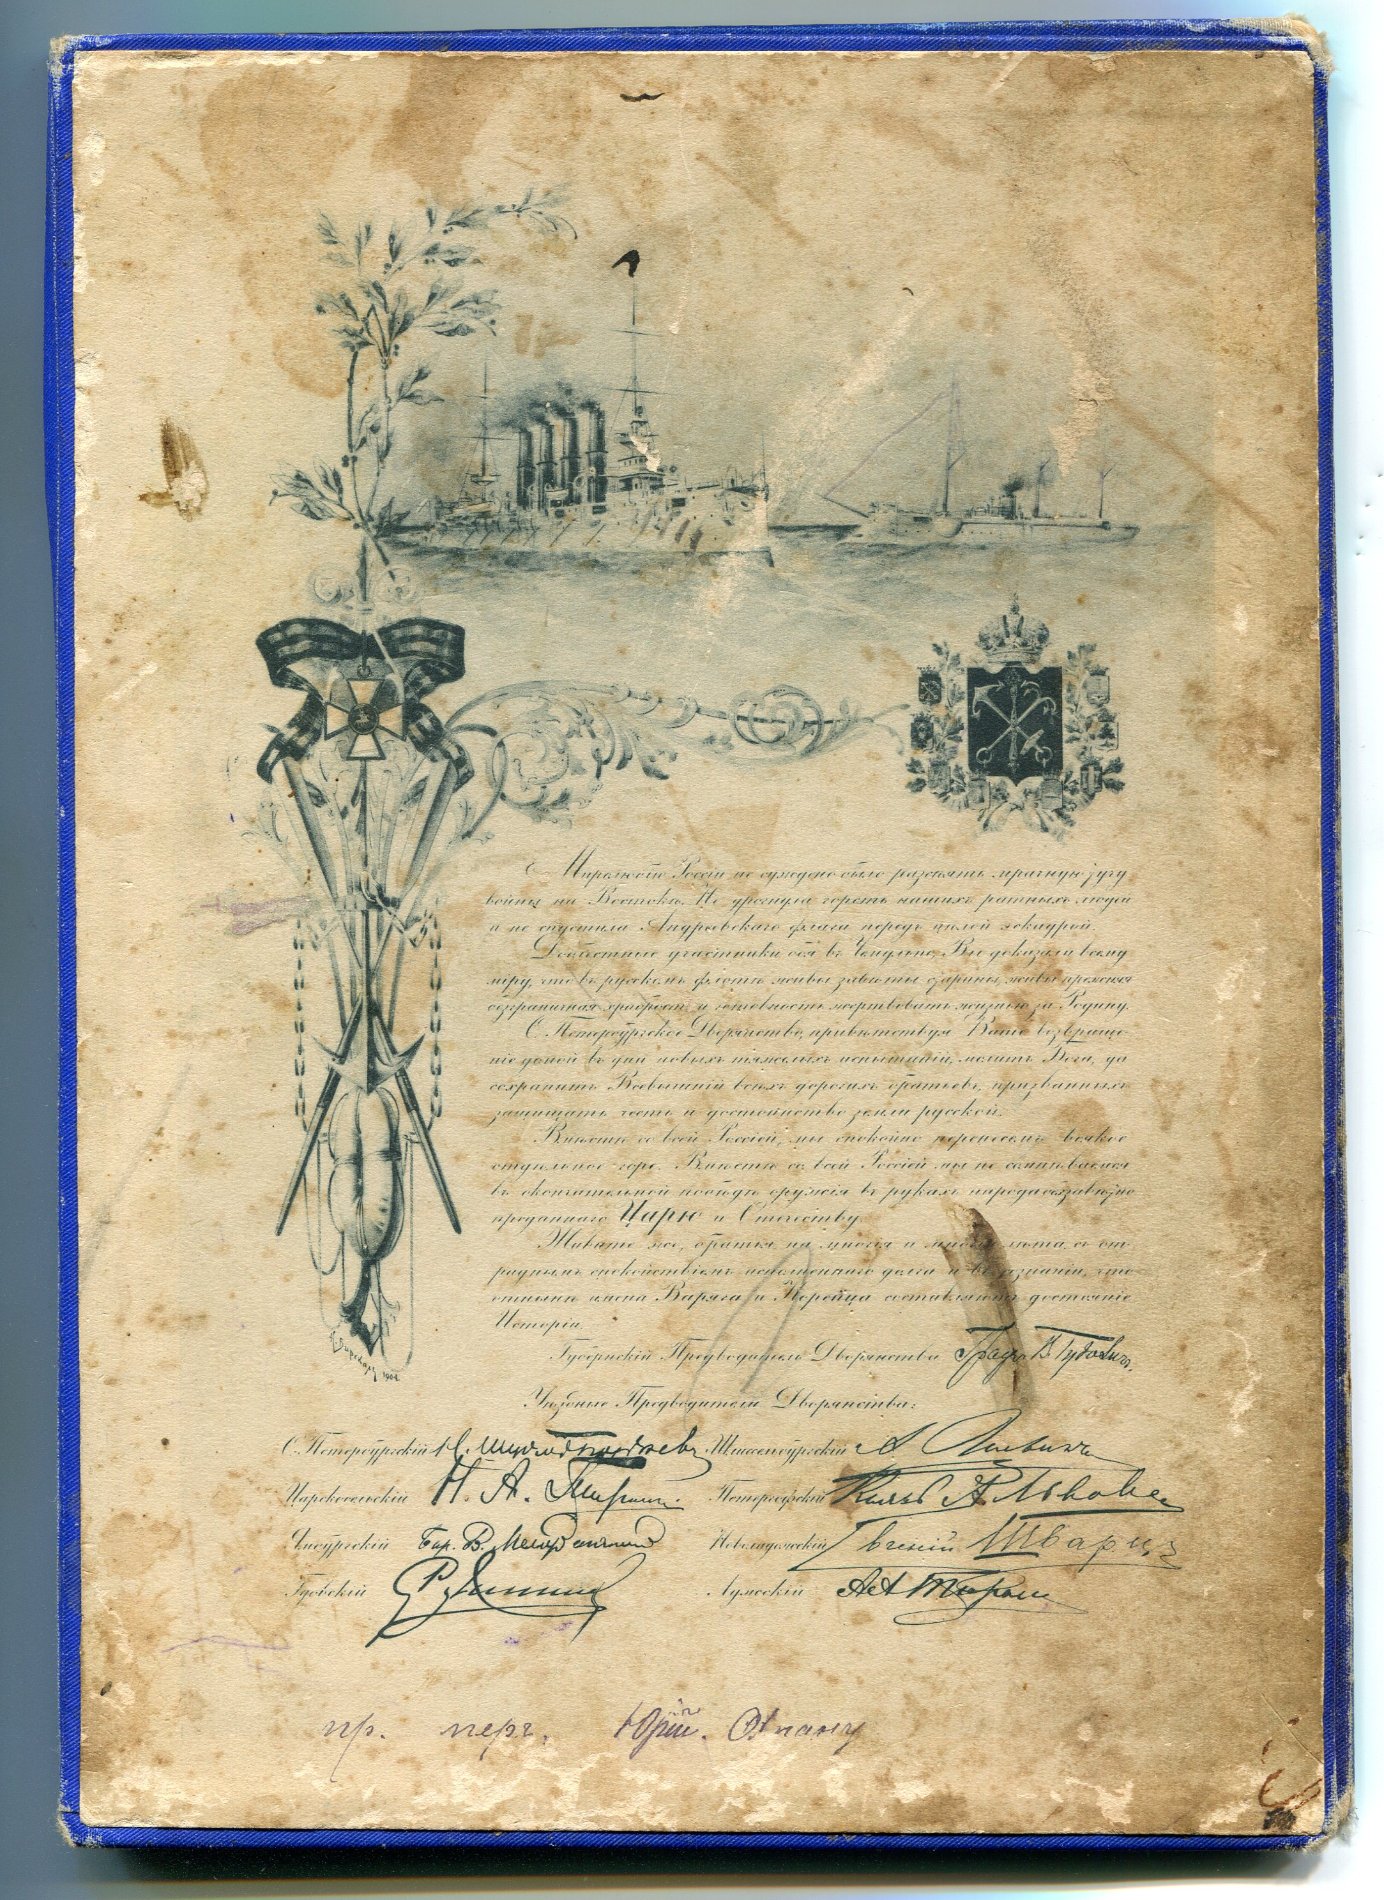 Миролюбію Россіи не суждено было разсѣять мрачную тучу
войны на Востокѣ. Не дрогнула горсть нашихъ ратныхъ людей
и не спустила Андреевскаго флага передъ цѣлой эскадрой.
Доблестные участники боя въ Чемульпо, Вы доказали всему
міру, что въ русскомъ флотѣ живы завѣты старины, живы прежняя
безграничная храбрость и готовность жертвовать жизнью за Родину.
С.Петербургское Дворянство, привѣтствуя Ваше возвраще-
ніе домой въ дни новыхъ тяжелыхъ испытаній, молитъ Бога, да
сохранитъ Всевышній всѣхъ дорогихъ братьевъ, призванныхъ
защищать честь и достоинство земли русской.
Вмѣстѣ со всей Россіей, мы спокойно перенесемъ всякое
отдѣльное горе. Вмѣстѣ со всей Россіей мы не сомнѣваемся
въ окончательной побѣдѣ оружія въ рукахъ народа беззавѣтно
преданнаго Царю и Отечеству.
Живите же, братья, на многія и многія лѣта, съ от-
раднымъ спокойствіемъ исполненнаго долга и въ сознаніи, что
отнынѣ имена Варяга и Корейца составляютъ достояніе
Исторіи.
1904
Губернскій Предводитель Дворянства Графъ В Гудовичъ.
Уѣздные Предводители Дворянства:
С.Петербургскій Шлиссельбургскій
Царскосельскій Н. А. Петергофскій Князь А Львовъ
Ямбургскій Бар. В. Новоладожскій Евгеній Шварцъ
Гдовскій Лужскій
пр. перг. Юрій.